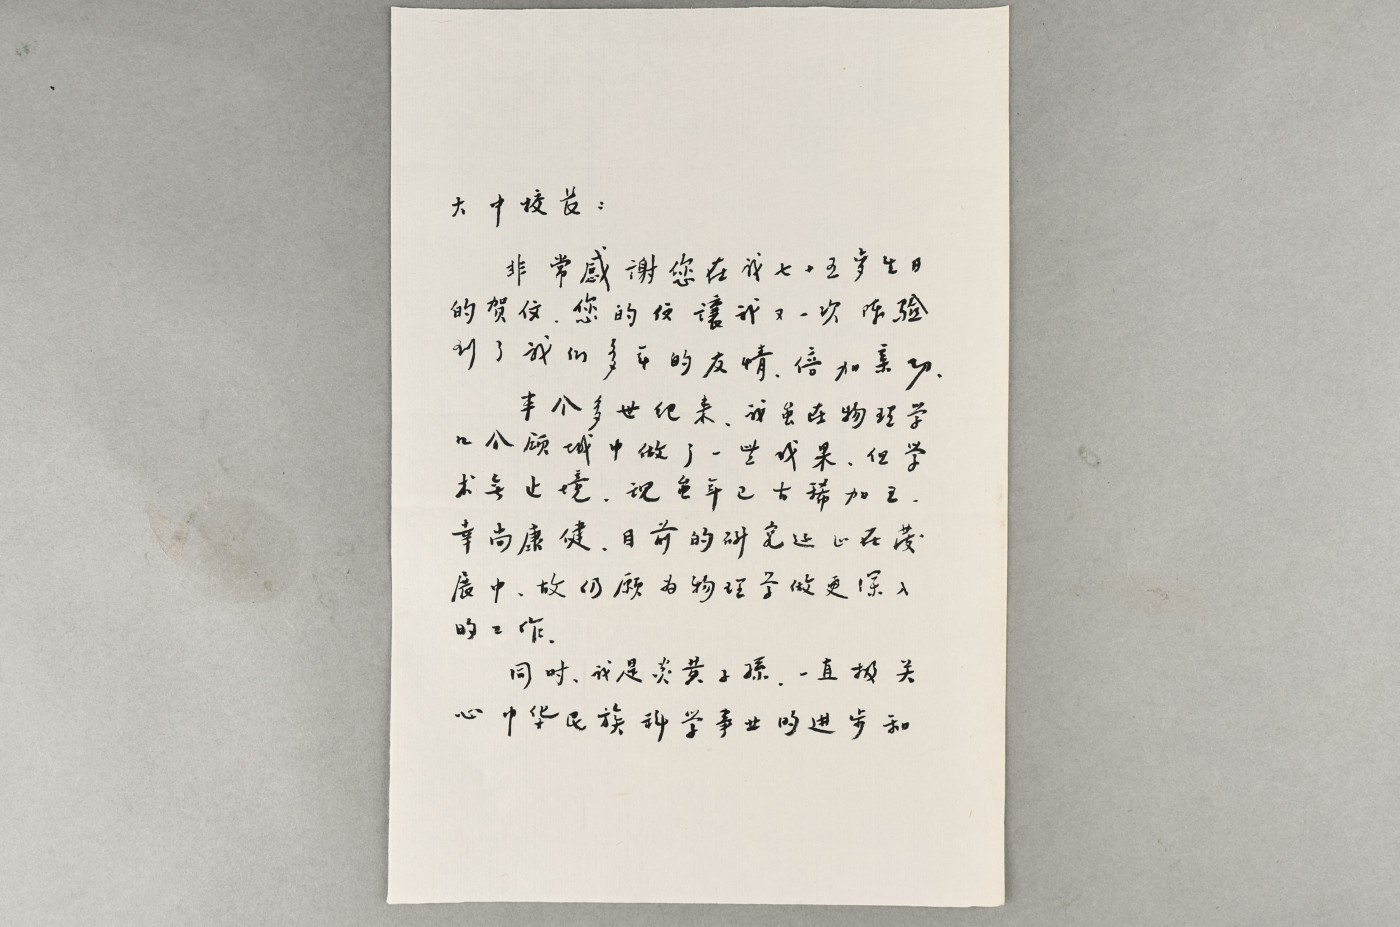 大中校长：
非常感謝您在我七十五岁生日
的贺信、您的信讓我又一次体验
到了我们多年的友情、倍加亲切、
半个多世纪来、我虽在物理学
几个领域中做了一些成果、但学
术无止境、现虽年已古稀加五、
幸尚康健、目前的研究还正在发
展中、故仍愿为物理学做更深入
的工作、
同时、我是炎黄子孫、一直极关
心中华民族科学事业的进步和